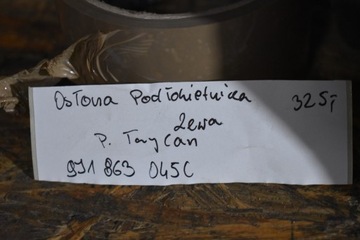 Osłona Podłokietnika 325,-
Lewa
P. Taycan
9J1 863 045C